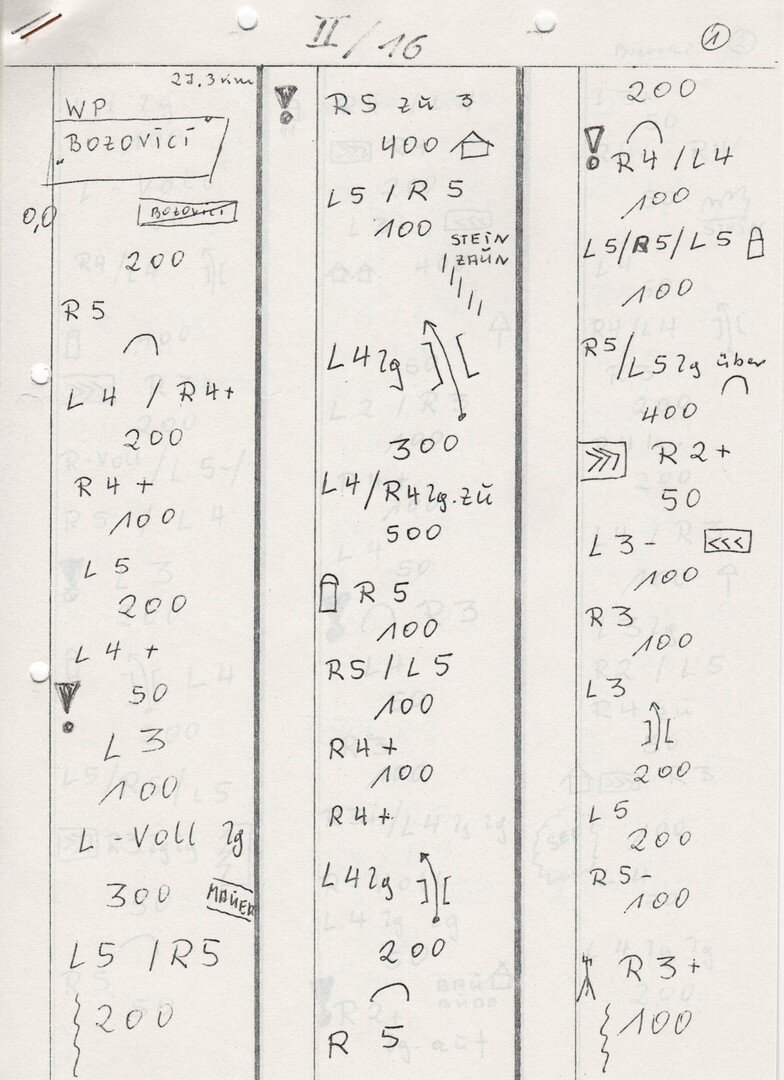 II/16
1
27,3 km
WP
"BOZOVICI"
0,0
BOZOVICI
200
R5
L4 / R4+
200
R4+
100
L5
200
L4+
50
!
L3
100
L-Voll lg
300 MAUER
L5 / R5
200
!
R5 zŭ 3
400
L5 / R5
100
STEIN
ZAŬN
L4 lg
300
L4/R4 lg. zŭ
500
R5
100
R5 / L5
100
R4+
100
R4+
L4 lg
200
R 5
200
!
R4 / L4
100
L5/R5/L5
100
R5/L5 lg über
400
>>> R2+
50
L3- <<<
100
R3
100
L3
200
L5
200
R5-
100
R3+
100